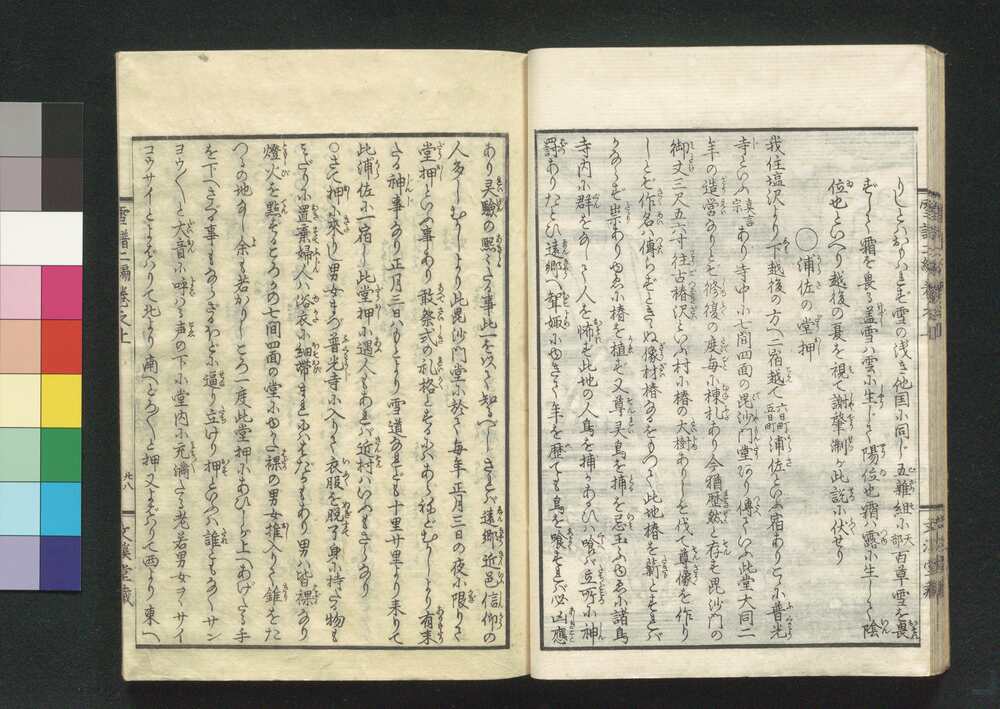 りしとぞおなじはれど雪の浅き他国に同じ五雑組に天部百草雪を畏
ずして霜を畏る蓋雪は雲に生じて陽位也霜は露に生じて陰
位也といへり越後の夏を視て謝肇淛が此説に伏せり
○浦佐の堂押
我住塩沢より下越後の方へ二宿越て六日町五日町浦佐といふ宿ありこゝに普光
寺といふ真言宗あり寺中に七間四面の毘沙門堂あり傳ていふ此堂大同二
年の造営なりとぞ修復の度毎に棟札あり今猶歴然と存す毘沙門の
御丈三尺五六寸往古椿沢といふ村に椿の大樹ありしを伐て尊像を作り
しとぞ作名は傳らずときゝぬ像材椿なるをもつて此地椿を薪とすれば
かならず祟ありゆゑに椿を植ず又尊灵鳥を捕を忌玉ふゆゑに諸鳥
寺内に群をなして人を怖ず此地の人鳥を捕かあるひは喰ば立所に神
罸ありたとひ遠郷へ聟娵にゆきて年を歴ても鳥を喰すれば必凶應
あり灵驗の照々たる事此一を以て知るべしされば遠郷近邑信仰の
人多しむかしより此毘沙門堂に於て毎年正月三日の夜に限りて
堂押といふ事あり敢祭式の礼格とするにはあらねどむかしより有来
たる神事なり正月三日はもとより雪道なれども十里廿里より来りて
此浦佐に一宿し此堂押に遇人もあれば近村はいふもさらなり
○さて押に来りし男女まづ普光寺に入りて衣服を脱了身に持たる物も
みだりに置棄婦人は浴衣に細帯まれにははだかもあり男は皆裸なり
燈火を點ずるころかの七間四面の堂にゆかた裸の男女推入りて錐をた
つるの地なし余も若かりしころ一度此堂押にあひしが上へあげたる手
を下へさぐる事もならざるほどに逼り立けり押といふは誰ともなくサン
ヨウ〳〵と大音に呼はる声の下に堂内に充満たる老若男女ヲヽサイ
コウサイとよばゝりて北より南へどろ〳〵と押又よばゝりて西より東へ
雪譜二編巻之上
廿八
文溪堂蔵